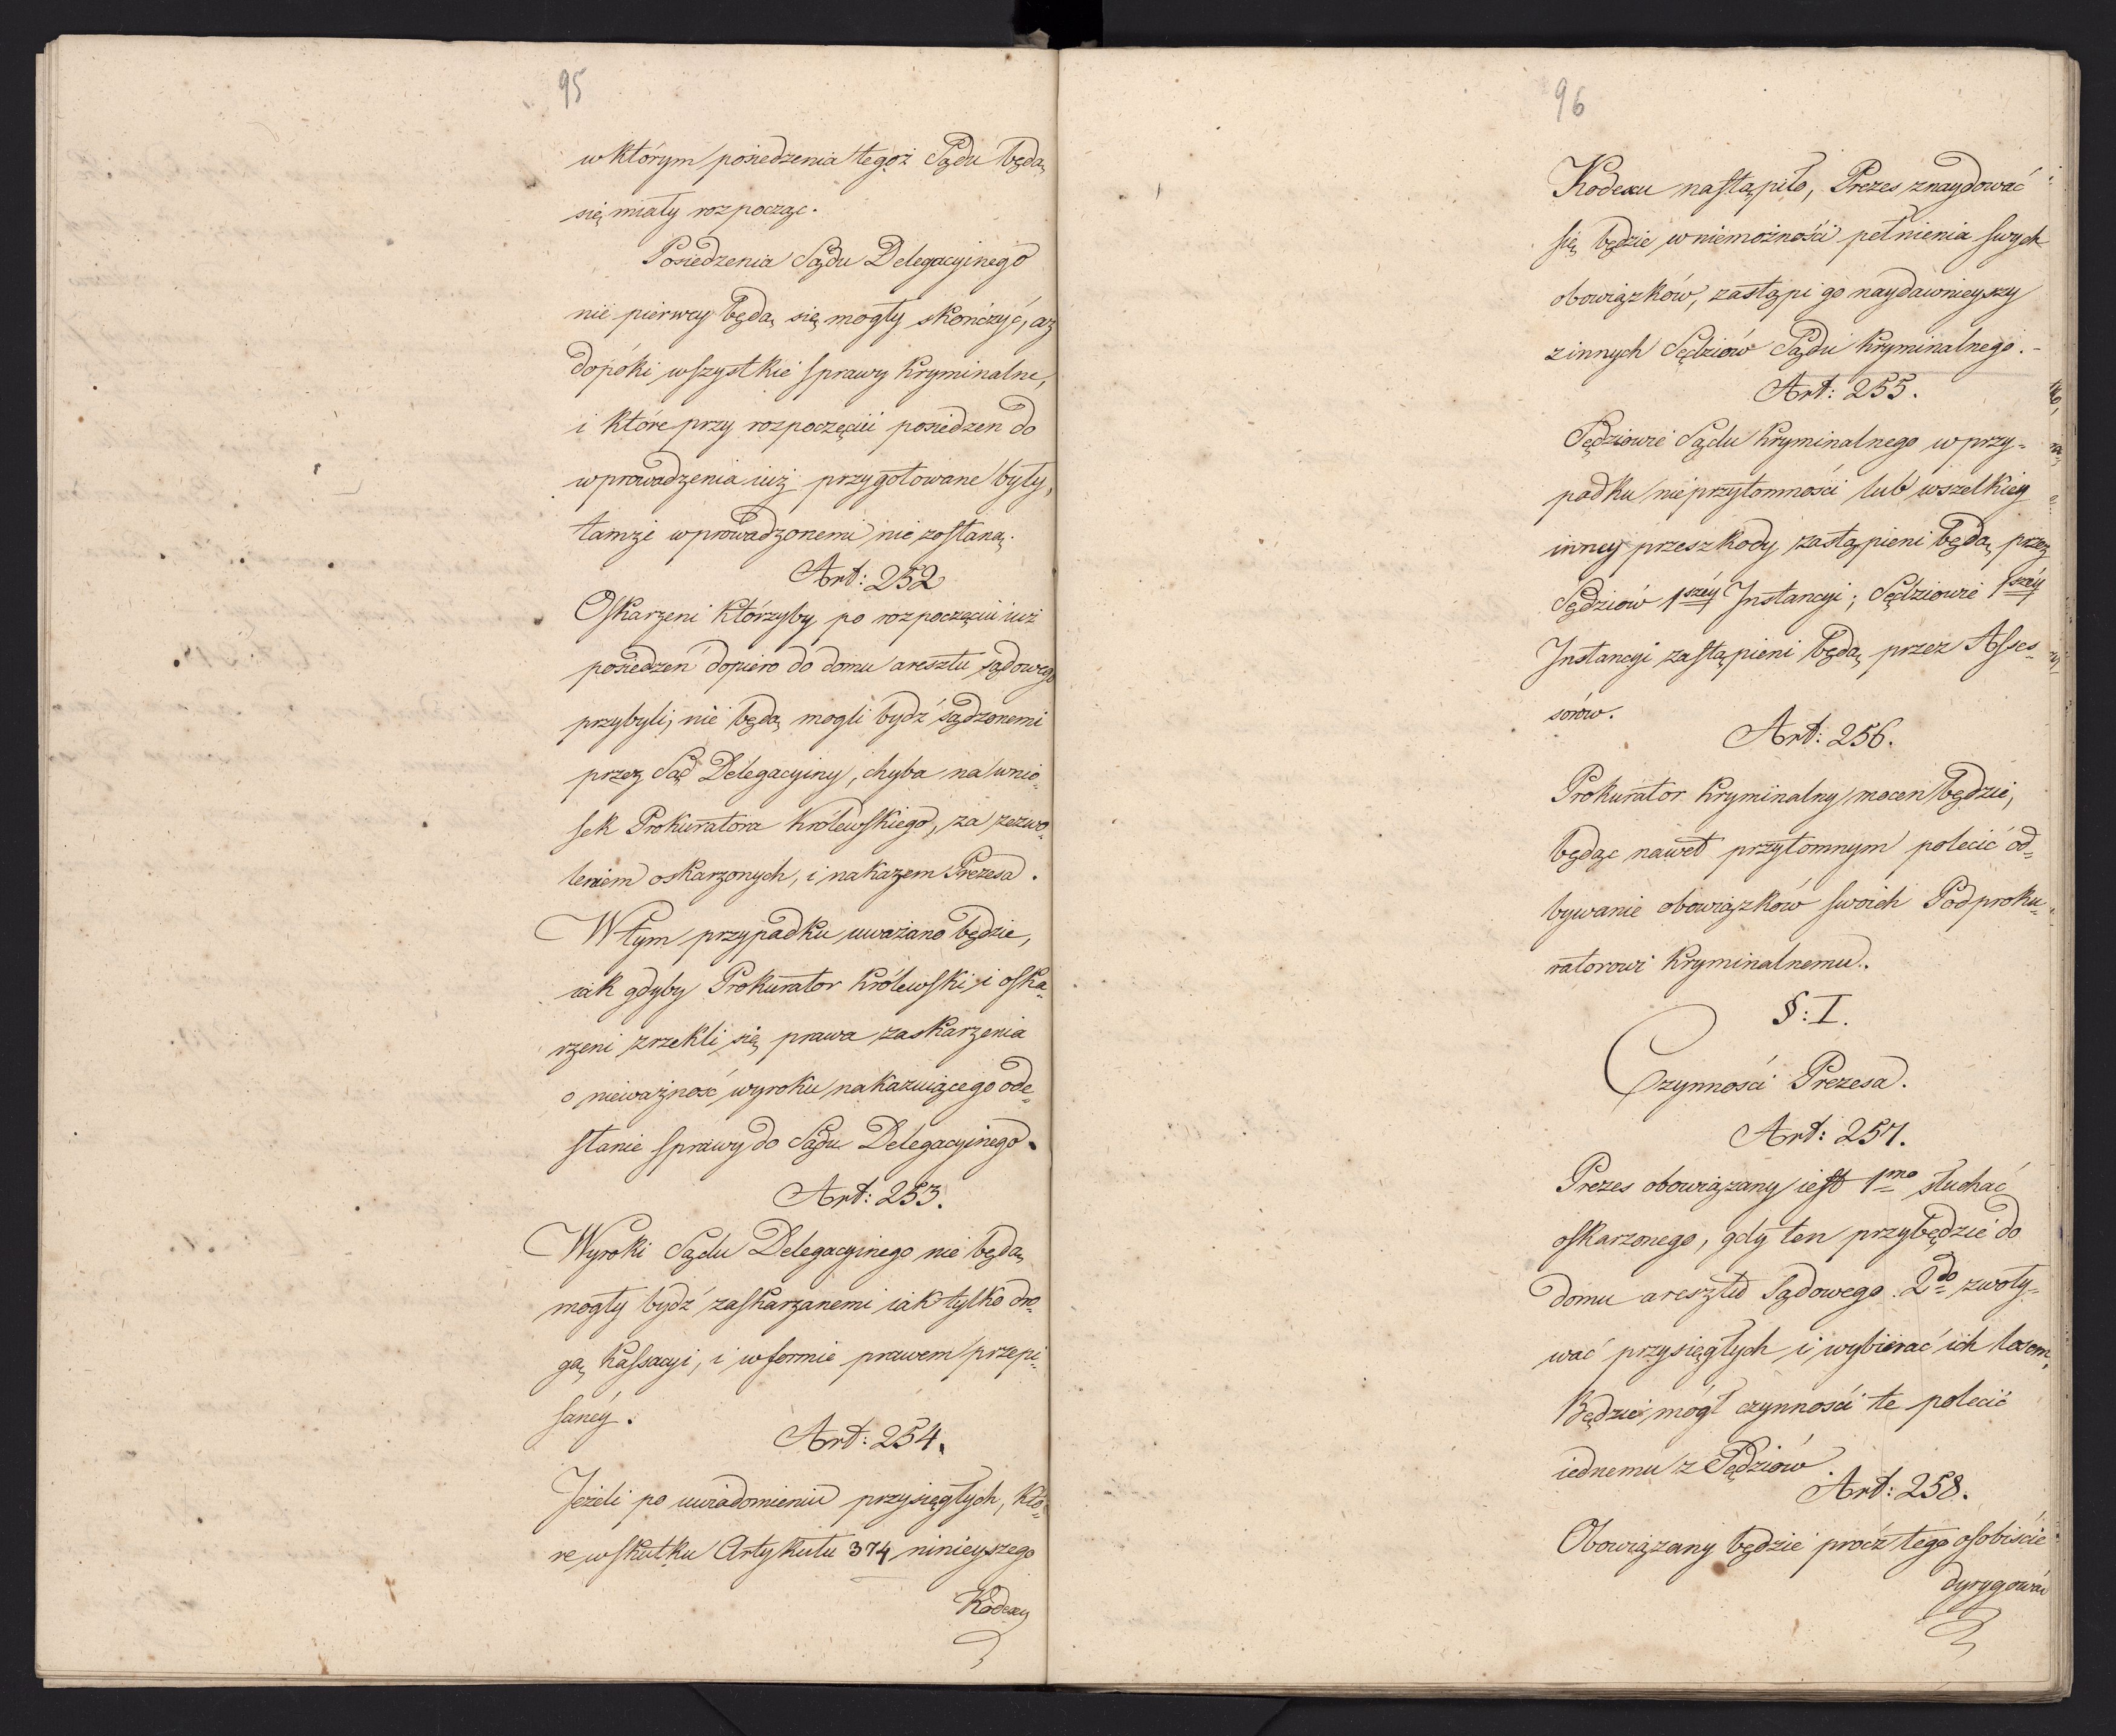 95
w którym posiedzenia tegoż Sądu będą
się miały rozpocząc.
Posiedzenia Sądu Delegacyinego
nie pierwey będą się mogły skończyć, aż
dopóki wszystkie sprawy kryminalne,
i które przy rozpoczęciu posiedzen do
wprowadzenia iuż przygotowane były,
tamże wprowadzonemi nie zostaną.
Art: 252
Oskarżeni którzyby po rozpoczęciu iuż
posiedzeń dopiero do domu aresztu sądowego
przybyli, nie będą mogli bydź sądzonemi
przez Sąd Delegacyiny, chyba na wnio=
sek Prokuratora Królewskiego, za zezwo=
leniem oskarżonych, i nakazem Prezesa.
W tym przypadku uważano będzie,
iak gdyby Prokurator Królewski i oska=
rżeni zrzekli się prawa zaskarżenia
o nieważność wyroku nakazuiącego ode=
słanie sprawy do Sądu Delegacyinego.
Art: 253.
Wyroki Sądu Delegacyinego nie będą
mogły bydź zaskarżanemi iak tylko dro=
gą Kassacyi, i w formie prawem przepi=
sanéy.
Art: 254.
Jeżeli po uwiadomieniu przysięgłych, któ=
re w skutku Artykułu 374 ninieyszego
Kodexu
96
Kodexu nastąpiło, Prezes znaydować
się będzie w niemożności pełnienia swych
obowiązków, zastąpi go naydawnieyszy
z innych Sędziów Sądu Kryminalnego.-
Art: 255.
Sędziowie Sądu Kryminalnego w przy=
padku nieprzytomności lub wszelkiey
inney przeszkody zastąpieni będą przez
Sędziów 1széy Instancyi; Sędziowie 1széy
Instancyi zastąpieni będą przez Asses=
sorów.
Art: 256.
Prokurator Kryminalny mocen będzie,
będąc nawet przytomnym polecić od=
bywanie obowiązków swoich Podproku=
ratorowi Kryminalnemu.
§: I.
Czynności Prezesa.
Art: 257.
Prezes obowiązany iest 1mo słuchać
oskarzonego, gdy ten przybędzie do
domu aresztu Sądowego. 2do zwoły=
wać przysięgłych i wybierać ich losem,
Będzie mógł czynności te polecić
iednemu z Sędziów.
Art: 258.
Obowiązany będzie prócz tego osobiście
dyrygować